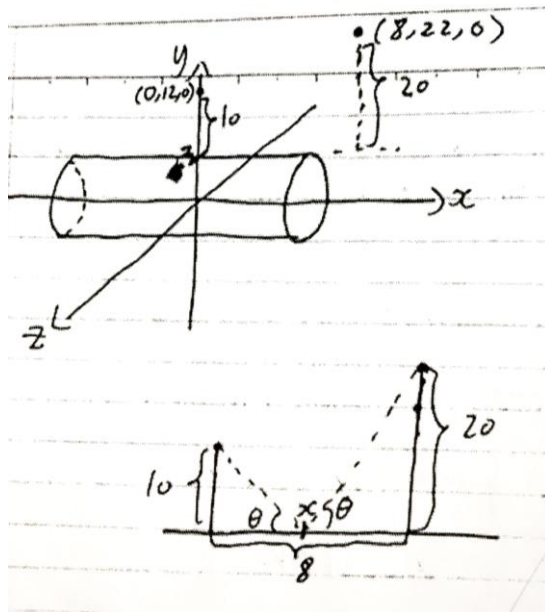 (8,22,0)
y
20
(0,12,0)
10
2
x
z
20
10
θ x θ
8